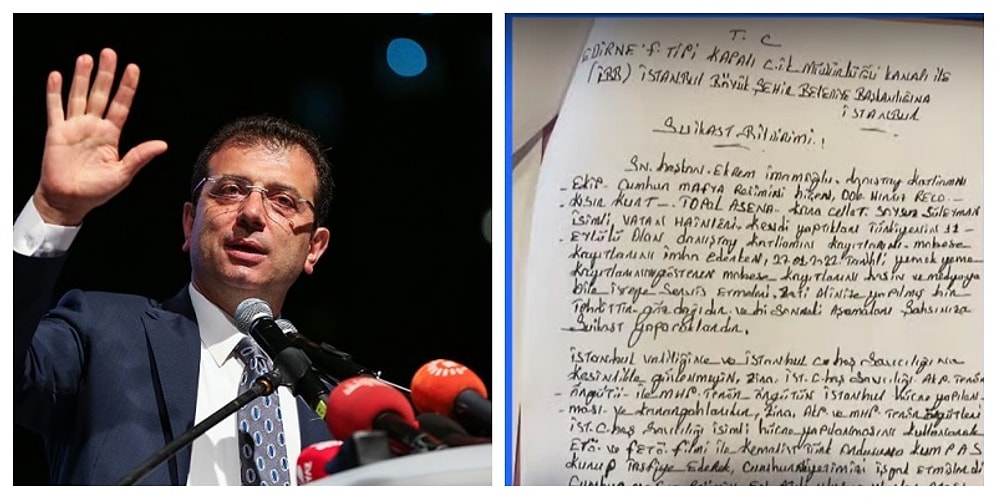 T. C
EDİRNE F. TİPİ KAPALI C.İK MÜDÜRLÜĞÜ KANALI İLE
(İBB) İSTANBUL BÜYÜK ŞEHİR BELEDİYE BAŞKANLIĞINA
İSTANBUL
Suikast Bildirimi!
Sn. başkan. Ekrem imamoğlu. danıştay katliamını
- Ekip. Cumhur MAFYA Rejimini
- KISIR KURT - TOPAL ASENA - Süleyman
isimli, VATAN HAİNLERİ. Kendi yaptıkları Türkiyenin 11 -
- EYLÜLÜ Olan danıştay katliamın kayıtlarını. mobese
kayıtlarını imha ederken, 27.01.2022 Tarihli yemek yeme
kayıtlarını gösteren mobese kayıtlarını basın ve medyaya
bile isteye servis etmeleri. zati alinize yapılmış bir
tehdittir göz dağıdır. ve bi sonraki aşamaları şahsınıza
- Suikast yapacaklardır.
İSTANBUL valiliğine ve İSTANBUL C.baş savcılığına
kesinlikle güvenmeyin, zira, İST.C.baş savcılığı AKP. Terör
- örgütü - ile MHP. Terör örgütün İSTANBUL hücre yapılan-
- ması. ve zira, AKP ve MHP. Terör örgütleri
İST. C. baş savcılığı isimli hücre yapılanmasını kullanarak
ve fetö. filmi ile Kemalist Türk ordusuna KUMPAS
kurup tasfiye ederek, Cumhuriyetimizi işgal etmişlerdi